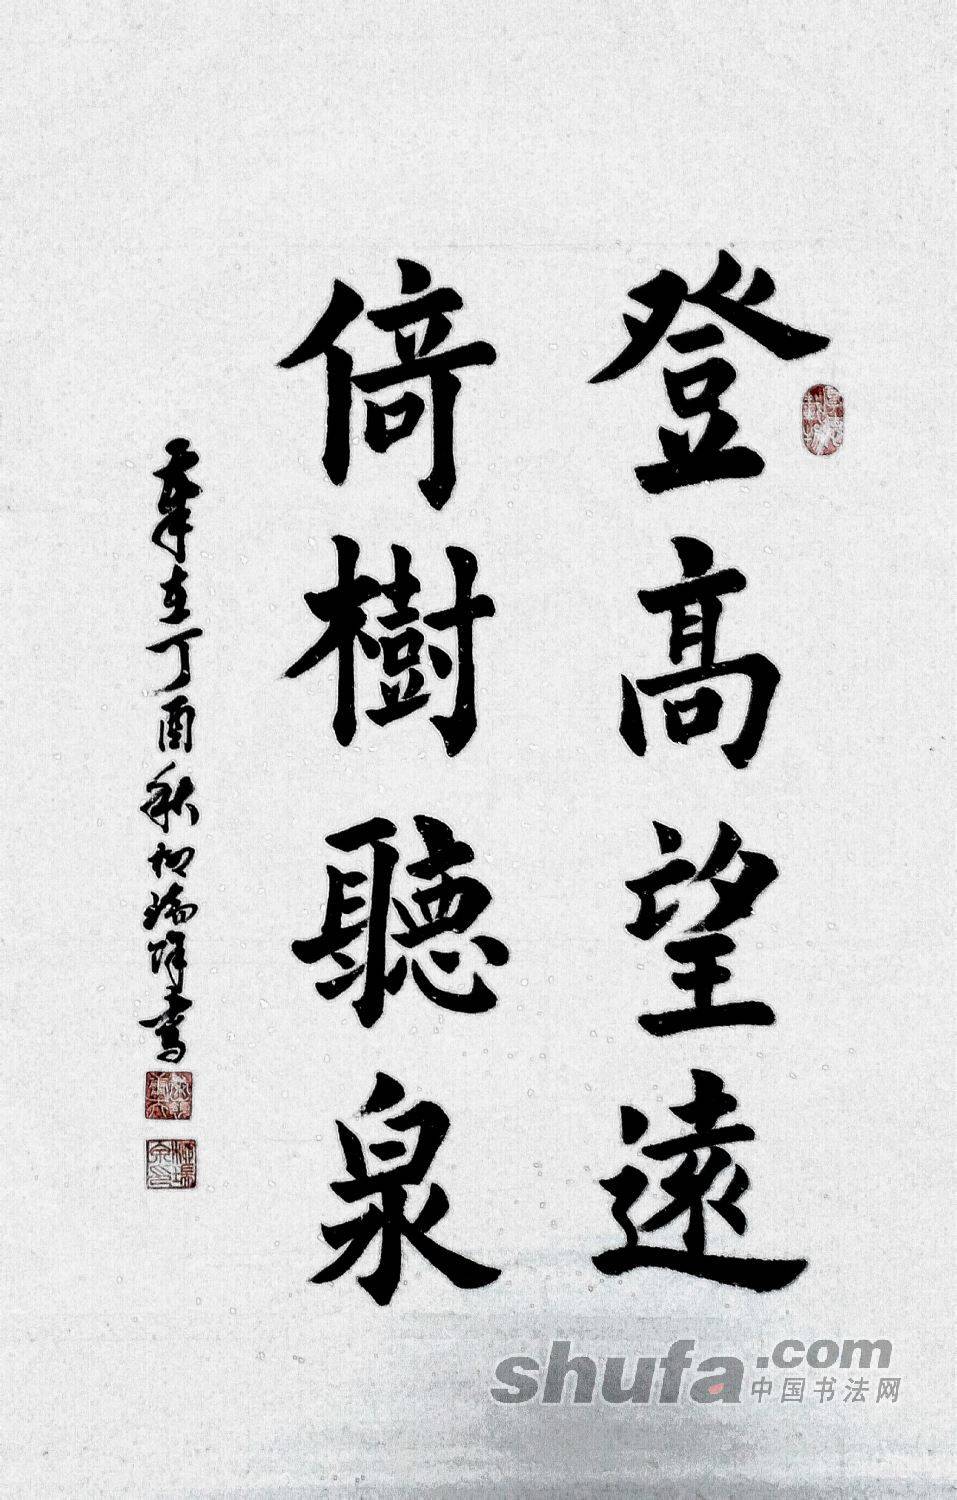 登高望遠
倚樹聽泉
歲在丁酉秋柳瑞祥書
shufa.com
中国书法网